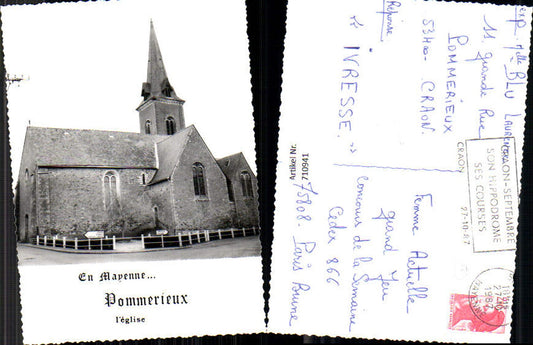 En Mayenne...
Pommerieux
l'église
exp. Mlle BLU Laurence
11. grande Rue
POMMERIEUX
53400 - CRAON.
Réponse
IVRESSE.
Article Nr.
710941
CRAON - SEPTEMBRE
SON HIPPODROME
SES COURSES
CRAON
27-10-87
Femme Actuelle
grand Jeu
concours de la Semaine
Cedex 866
75808. Paris Brune